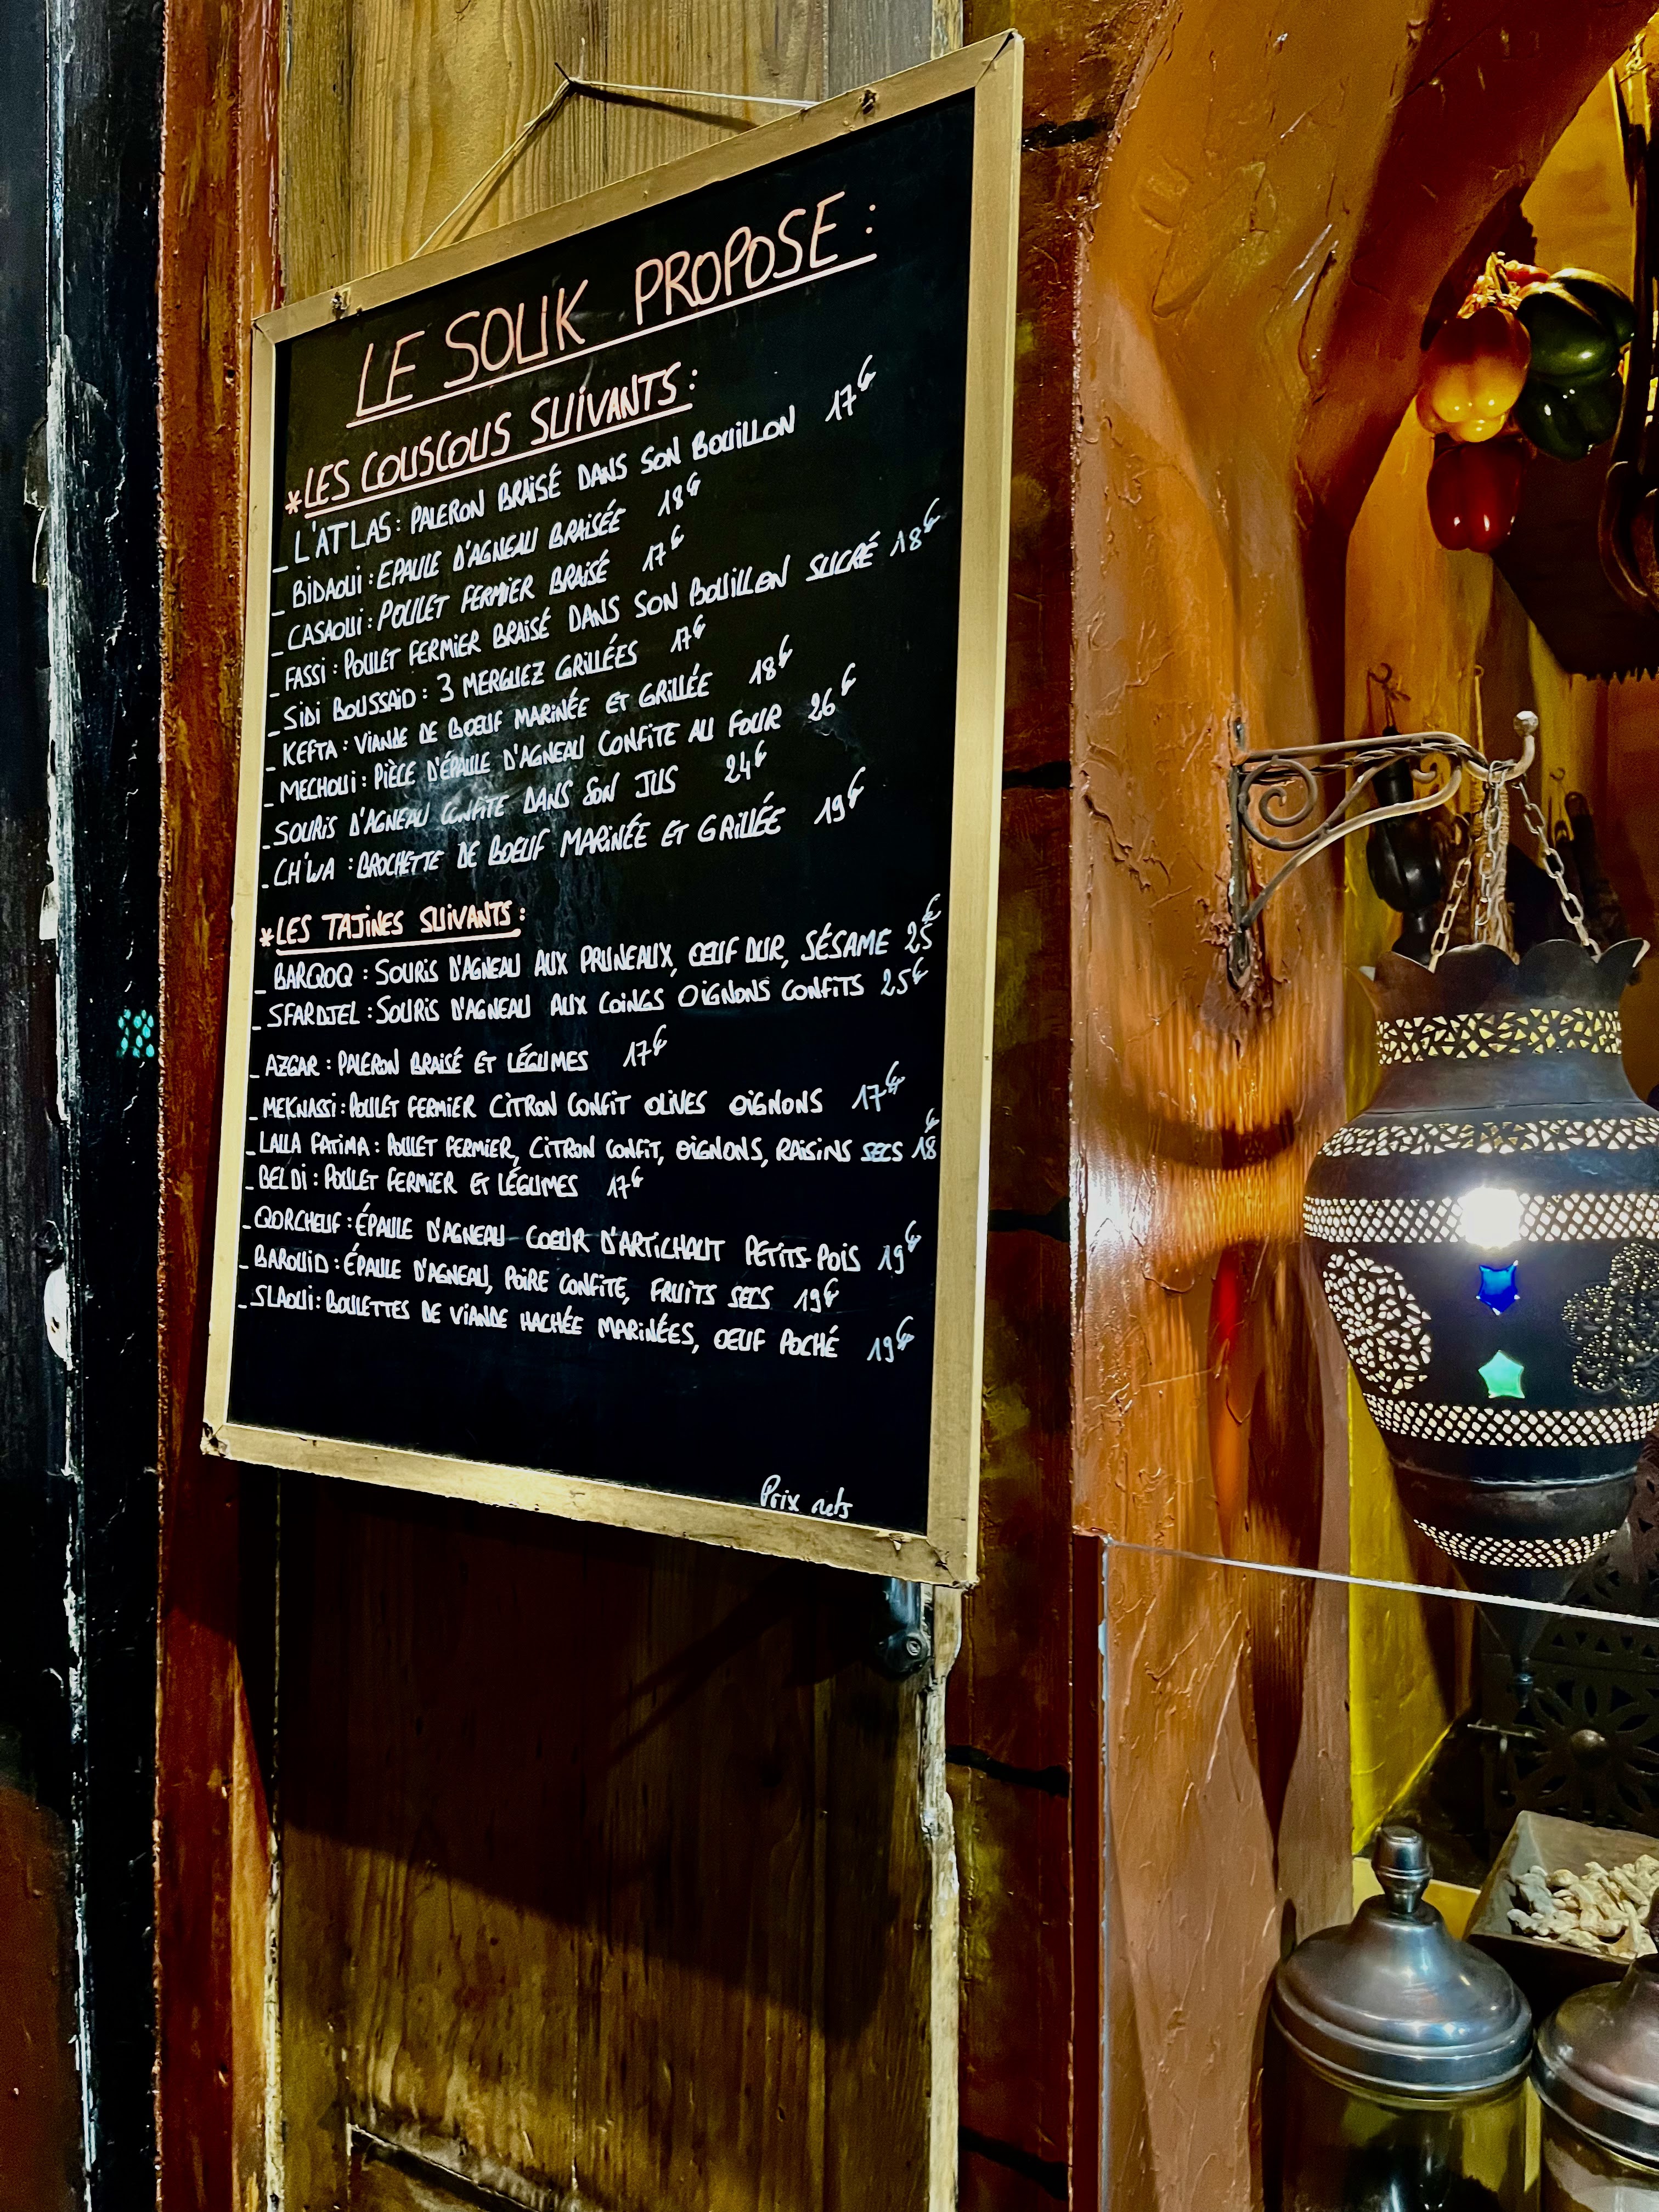 LE SOUK PROPOSE :
*LES COUSCOUS SUIVANTS :
_ L'ATLAS : PALERON BRAISÉ DANS SON BOUILLON 17€
_ BIDAOUI : EPAULE D'AGNEAU BRAISÉE 18€
_ CASAOUI : POULET FERMIER BRAISÉ 17€
_ FASSI : POULET FERMIER BRAISÉ DANS SON BOUILLON SUCRÉ 18€
_ SIDI BOUSSAID : 3 MERGUEZ GRILLÉES 17€
_ KEFTA : VIANDE DE BOEUF MARINÉE ET GRILLÉE 18€
_ MECHOUI : PIÈCE D'ÉPAULE D'AGNEAU CONFITE AU FOUR 26€
_ SOURIS D'AGNEAU CONFITE DANS SON JUS 24€
_ CH'WA : BROCHETTE DE BOEUF MARINÉE ET GRILLÉE 19€
*LES TAJINES SUIVANTS :
_ BARQOQ : SOURIS D'AGNEAU AUX PRUNEAUX, OEUF DUR, SÉSAME 25€
_ SFARDJEL : SOURIS D'AGNEAU AUX COINGS OIGNONS CONFITS 25€
_ AZGAR : PALERON BRAISÉ ET LÉGUMES 17€
_ MEKNASSI : POULET FERMIER CITRON CONFIT OLIVES OIGNONS 17€
_ LALLA FATIMA : POULET FERMIER, CITRON CONFIT, OIGNONS, RAISINS SECS 18€
_ BELDI : POULET FERMIER ET LÉGUMES 17€
_ QORCHEUF : ÉPAULE D'AGNEAU COEUR D'ARTICHAUT PETITS-POIS 19€
_ BAROUID : ÉPAULE D'AGNEAU, POIRE CONFITE, FRUITS SECS 19€
_ SLAOUI : BOULETTES DE VIANDE HACHÉE MARINÉES, OEUF POCHÉ 19€
Prix nets